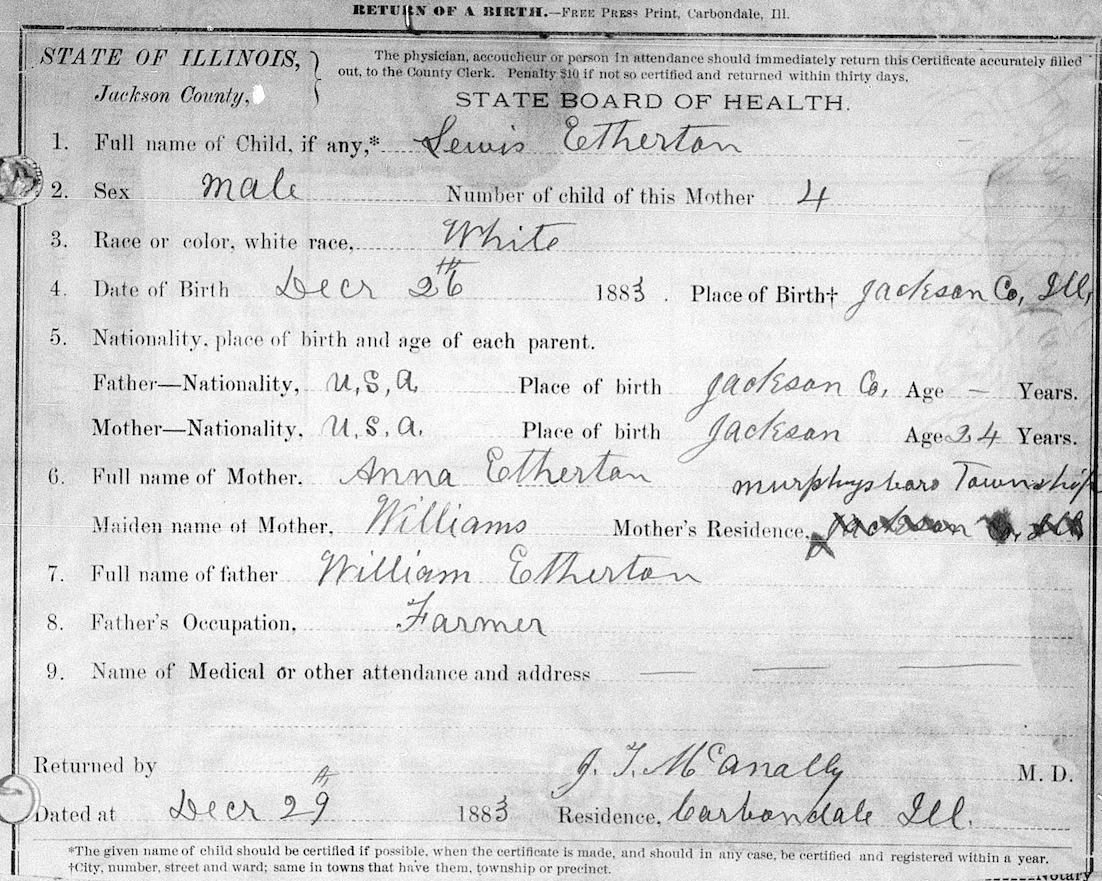 RETURN OF A BIRTH.—FREE PRESS Print, Carbondale, Ill.
STATE OF ILLINOIS,
Jackson County,
The physician, accoucheur or person in attendance should immediately return this Certificate accurately filled
out, to the County Clerk. Penalty $10 if not so certified and returned within thirty days.
STATE BOARD OF HEALTH.
1. Full name of Child, if any,* Lewis Etherton
2. Sex male Number of child of this Mother 4
3. Race or color, white race, White
4. Date of Birth Decr 26th 1883. Place of Birth† Jackson Co, Ill,
5. Nationality, place of birth and age of each parent.
Father—Nationality, U,S,A Place of birth Jackson Co, Age — Years.
Mother—Nationality, U,S.A. Place of birth Jackson Age 24 Years.
6. Full name of Mother, Anna Etherton murphysboro Township
Maiden name of Mother, Williams Mother's Residence, Jackson Co, Ill
7. Full name of father William Etherton
8. Father's Occupation, Farmer
9. Name of Medical or other attendance and address — — —
Returned by J. T. McAnally M. D.
Dated at Decr 29th 1883 Residence, Carbondale Ill.
*The given name of child should be certified if possible, when the certificate is made, and should in any case, be certified and registered within a year.
†City, number, street and ward; same in towns that have them, township or precinct.
Notary